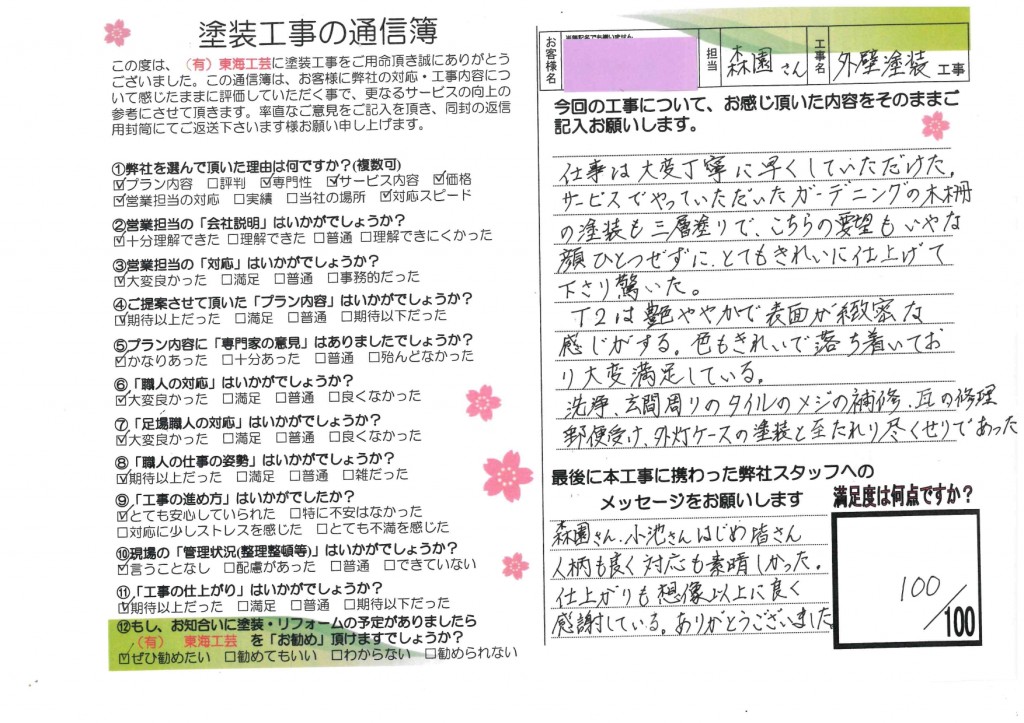 塗装工事の通信簿
この度は、（有）東海工芸に塗装工事をご用命頂き誠にありがとう
ございました。この通信簿は、お客様に弊社の対応・工事内容につ
いて感じたままに評価していただく事で、更なるサービスの向上の
参考にさせて頂きます。率直なご意見をご記入を頂き、同封の返信
用封筒にてご返送下さいます様お願い申し上げます。
①弊社を選んで頂いた理由は何ですか？(複数可)
☑プラン内容 □評判 ☑専門性 ☑サービス内容 ☑価格
☑営業担当の対応 □実績 □当社の場所 ☑対応スピード
②営業担当の「会社説明」はいかがでしょうか？
☑十分理解できた □理解できた □普通 □理解できにくかった
③営業担当の「対応」はいかがでしょうか？
☑大変良かった □満足 □普通 □事務的だった
④ご提案させて頂いた「プラン内容」はいかがでしょうか？
☑期待以上だった □満足 □普通 □期待以下だった
⑤プラン内容に「専門家の意見」はありましたでしょうか？
☑かなりあった □十分あった □普通 □殆んどなかった
⑥「職人の対応」はいかがでしょうか？
☑大変良かった □満足 □普通 □良くなかった
⑦「足場職人の対応」はいかがでしょうか？
☑大変良かった □満足 □普通 □良くなかった
⑧「職人の仕事の姿勢」はいかがでしょうか？
☑期待以上だった □満足 □普通 □雑だった
⑨「工事の進め方」はいかがでしたか？
☑とても安心していられた □特に不安はなかった
□対応に少しストレスを感じた □とても不満を感じた
⑩現場の「管理状況(整理整頓等)」はいかがでしょうか？
☑言うことなし □配慮があった □普通 □できていない
⑪「工事の仕上がり」はいかがでしょうか？
☑期待以上だった □満足 □普通 □期待以下だった
⑫もし、お知合いに塗装・リフォームの予定がありましたら
（有）東海工芸 を「お勧め」頂けますでしょうか？
☑ぜひ勧めたい □勧めてもいい □わからない □勧められない
お客様名 担当 森園さん 工事名 外壁塗装工事
今回の工事について、お感じ頂いた内容をそのままご
記入お願いします。
仕事は大変丁寧に早くしていただけた。
サービスでやっていただいたガーデニングの木柵
の塗装も三層塗りで、こちらの要望もいやな
顔ひとつせずに、とてもきれいに仕上げて
下さり驚いた。
T2は艶ややかで表面が緻密な
感じがする。色もきれいで落ち着いてお
り大変満足している。
洗浄、玄関周りのタイルのメジの補修、瓦の修理
郵便受け、外灯ケースの塗装と至たれり尽くせりであった
最後に本工事に携わった弊社スタッフへの
メッセージをお願いします
森園さん、小池さんはじめ皆さん
人柄も良く対応も素晴しかった。
仕上がりも想像以上に良く
感謝している。ありがとうございました
満足度は何点ですか？
100/100